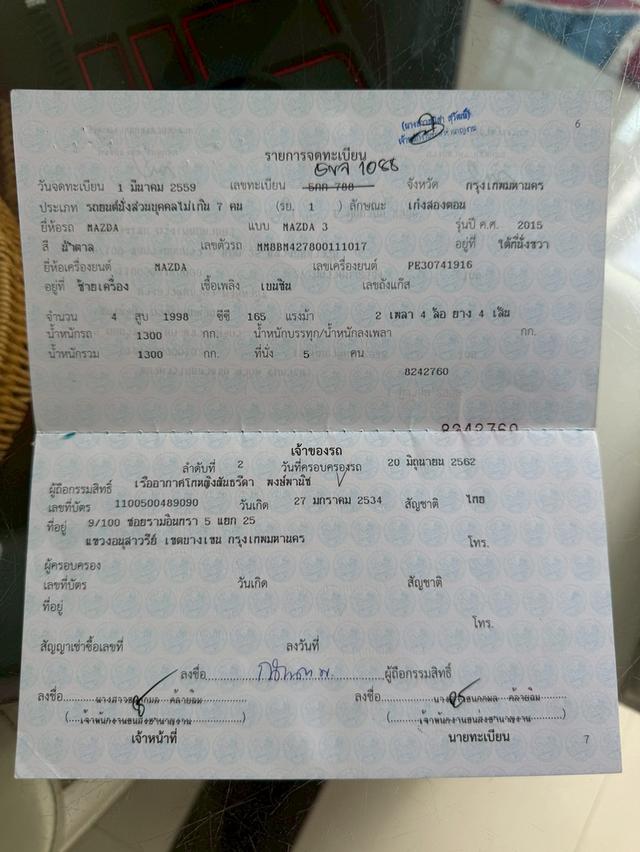 6
รายการจดทะเบียน
1088
วันจดทะเบียน 1 มีนาคม 2559 เลขทะเบียน 5กก 788 จังหวัด กรุงเทพมหานคร
ประเภท รถยนต์นั่งส่วนบุคคลไม่เกิน 7 คน (รย. 1 ) ลักษณะ เก๋งสองตอน
ยี่ห้อรถ MAZDA แบบ MAZDA 3 รุ่นปี ค.ศ. 2015
สี น้ำตาล เลขตัวรถ MM8BM427800111017 อยู่ที่ ใต้ที่นั่งขวา
ยี่ห้อเครื่องยนต์ MAZDA เลขเครื่องยนต์ PE30741916
อยู่ที่ ซ้ายเครื่อง เชื้อเพลิง เบนซิน เลขถังแก๊ส
จำนวน 4 สูบ 1998 ซีซี 165 แรงม้า 2 เพลา 4 ล้อ ยาง 4 เส้น
น้ำหนักรถ 1300 กก. น้ำหนักบรรทุก/น้ำหนักลงเพลา กก.
น้ำหนักรวม 1300 กก. ที่นั่ง 5 คน
8242760
8242760
เจ้าของรถ
ลำดับที่ 2 วันที่ครอบครองรถ 20 มิถุนายน 2562
ผู้ถือกรรมสิทธิ์ เรืออากาศโทหญิงฆันธริดา พงษ์พานิช
เลขที่บัตร 1100500489090 วันเกิด 27 มกราคม 2534 สัญชาติ ไทย
ที่อยู่ 9/100 ซอยรามอินทรา 5 แยก 25
แขวงอนุสาวรีย์ เขตบางเขน กรุงเทพมหานคร โทร.
ผู้ครอบครอง
เลขที่บัตร วันเกิด สัญชาติ
ที่อยู่
โทร.
สัญญาเช่าซื้อเลขที่ ลงวันที่
ลงชื่อ ผู้ถือกรรมสิทธิ์
ลงชื่อ นางสาว คล้ายฉิม ลงชื่อ คล้ายฉิม
(เจ้าพนักงานขนส่งชำนาญงาน) (เจ้าพนักงานขนส่งชำนาญงาน)
เจ้าหน้าที่ นายทะเบียน
7